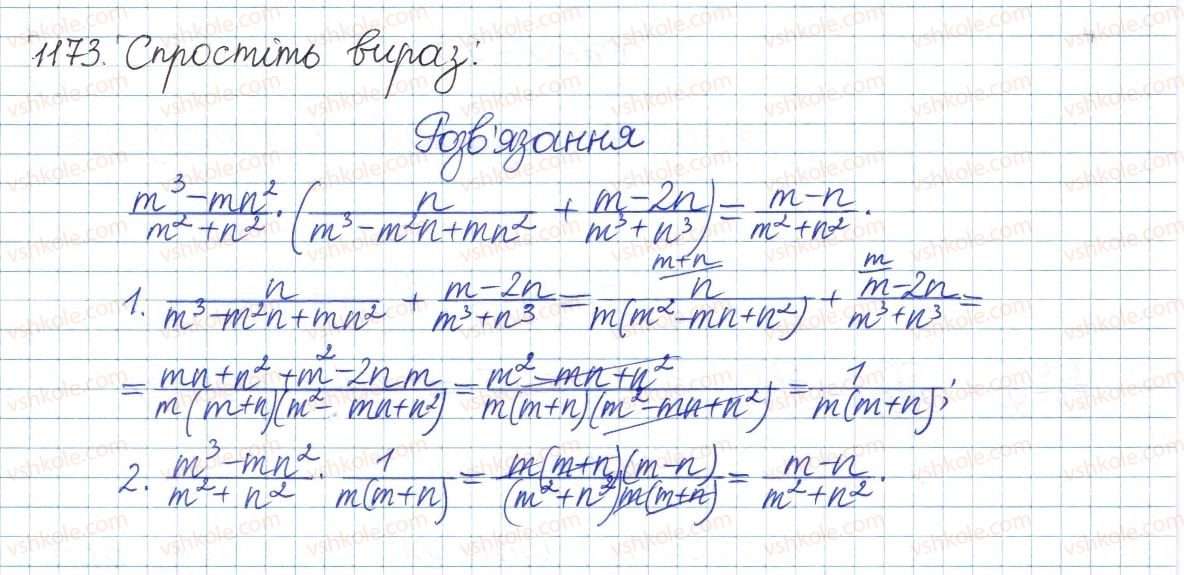 1173. Спростіть вираз:
Розв'язання
\frac{m^3-mn^2}{m^2+n^2} \cdot \left(\frac{n}{m^3-m^2n+mn^2} + \frac{m-2n}{m^3+n^3}\right) = \frac{m-n}{m^2+n^2}.
1. \frac{n}{m^3-m^2n+mn^2} + \frac{m-2n}{m^3+n^3} = \frac{\overset{m+n}{n}}{m(m^2-mn+n^2)} + \frac{\overset{m}{m-2n}}{m^3+n^3} =
= \frac{mn+n^2+m^2-2nm}{m(m+n)(m^2-mn+n^2)} = \frac{m^2-mn+n^2}{m(m+n)(m^2-mn+n^2)} = \frac{1}{m(m+n)};
2. \frac{m^3-mn^2}{m^2+n^2} \cdot \frac{1}{m(m+n)} = \frac{m(m+n)(m-n)}{(m^2+n^2)m(m+n)} = \frac{m-n}{m^2+n^2}.
vshkole.com